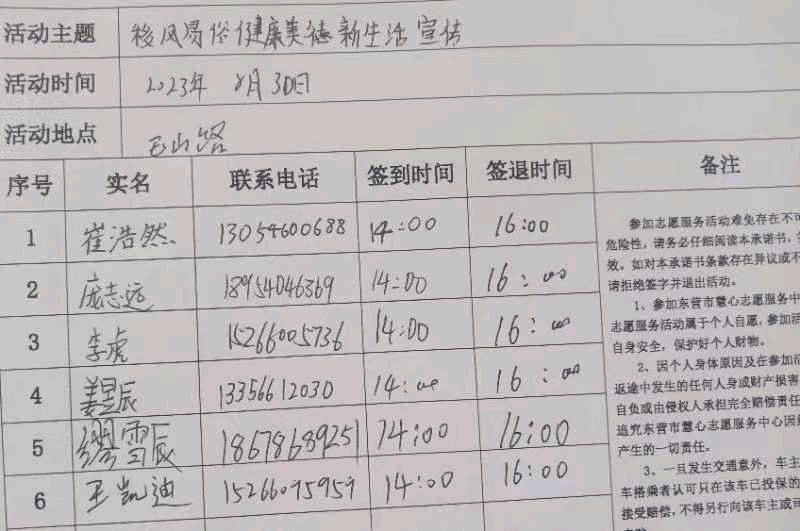 活动主题 移风易俗健康美德新生活宣传
活动时间 2023年 8月30日
活动地点 玉山路
序号 实名 联系电话 签到时间 签退时间 备注
1 崔浩然 13054600688 14:00 16:00
2 庞志远 18954046369 14:00 16:00
3 李虎 15266005736 14:00 16:00
4 姜昱辰 13356612030 14:00 16:00
5 缪雪辰 18678689251 14:00 16:00
6 王凯迪 15266095959 14:00 16:00
参加志愿服务活动难免存在不可
危险性，请务必仔细阅读本承诺书，
效。如对本承诺书条款存在异议或不
请拒绝签字并退出活动。
1、参加东营市慧心志愿服务中
志愿服务活动属于个人自愿，参加活
自身安全，保护好个人财物。
2、因个人身体原因及在参加活
返途中发生的任何人身或财产损害
自负或由侵权人承担完全赔偿责任
追究东营市慧心志愿服务中心因
产生的一切责任。
3、一旦发生交通意外，车主
车搭乘者认可只在该车已投保的
接受赔偿，不得另行向该车主或